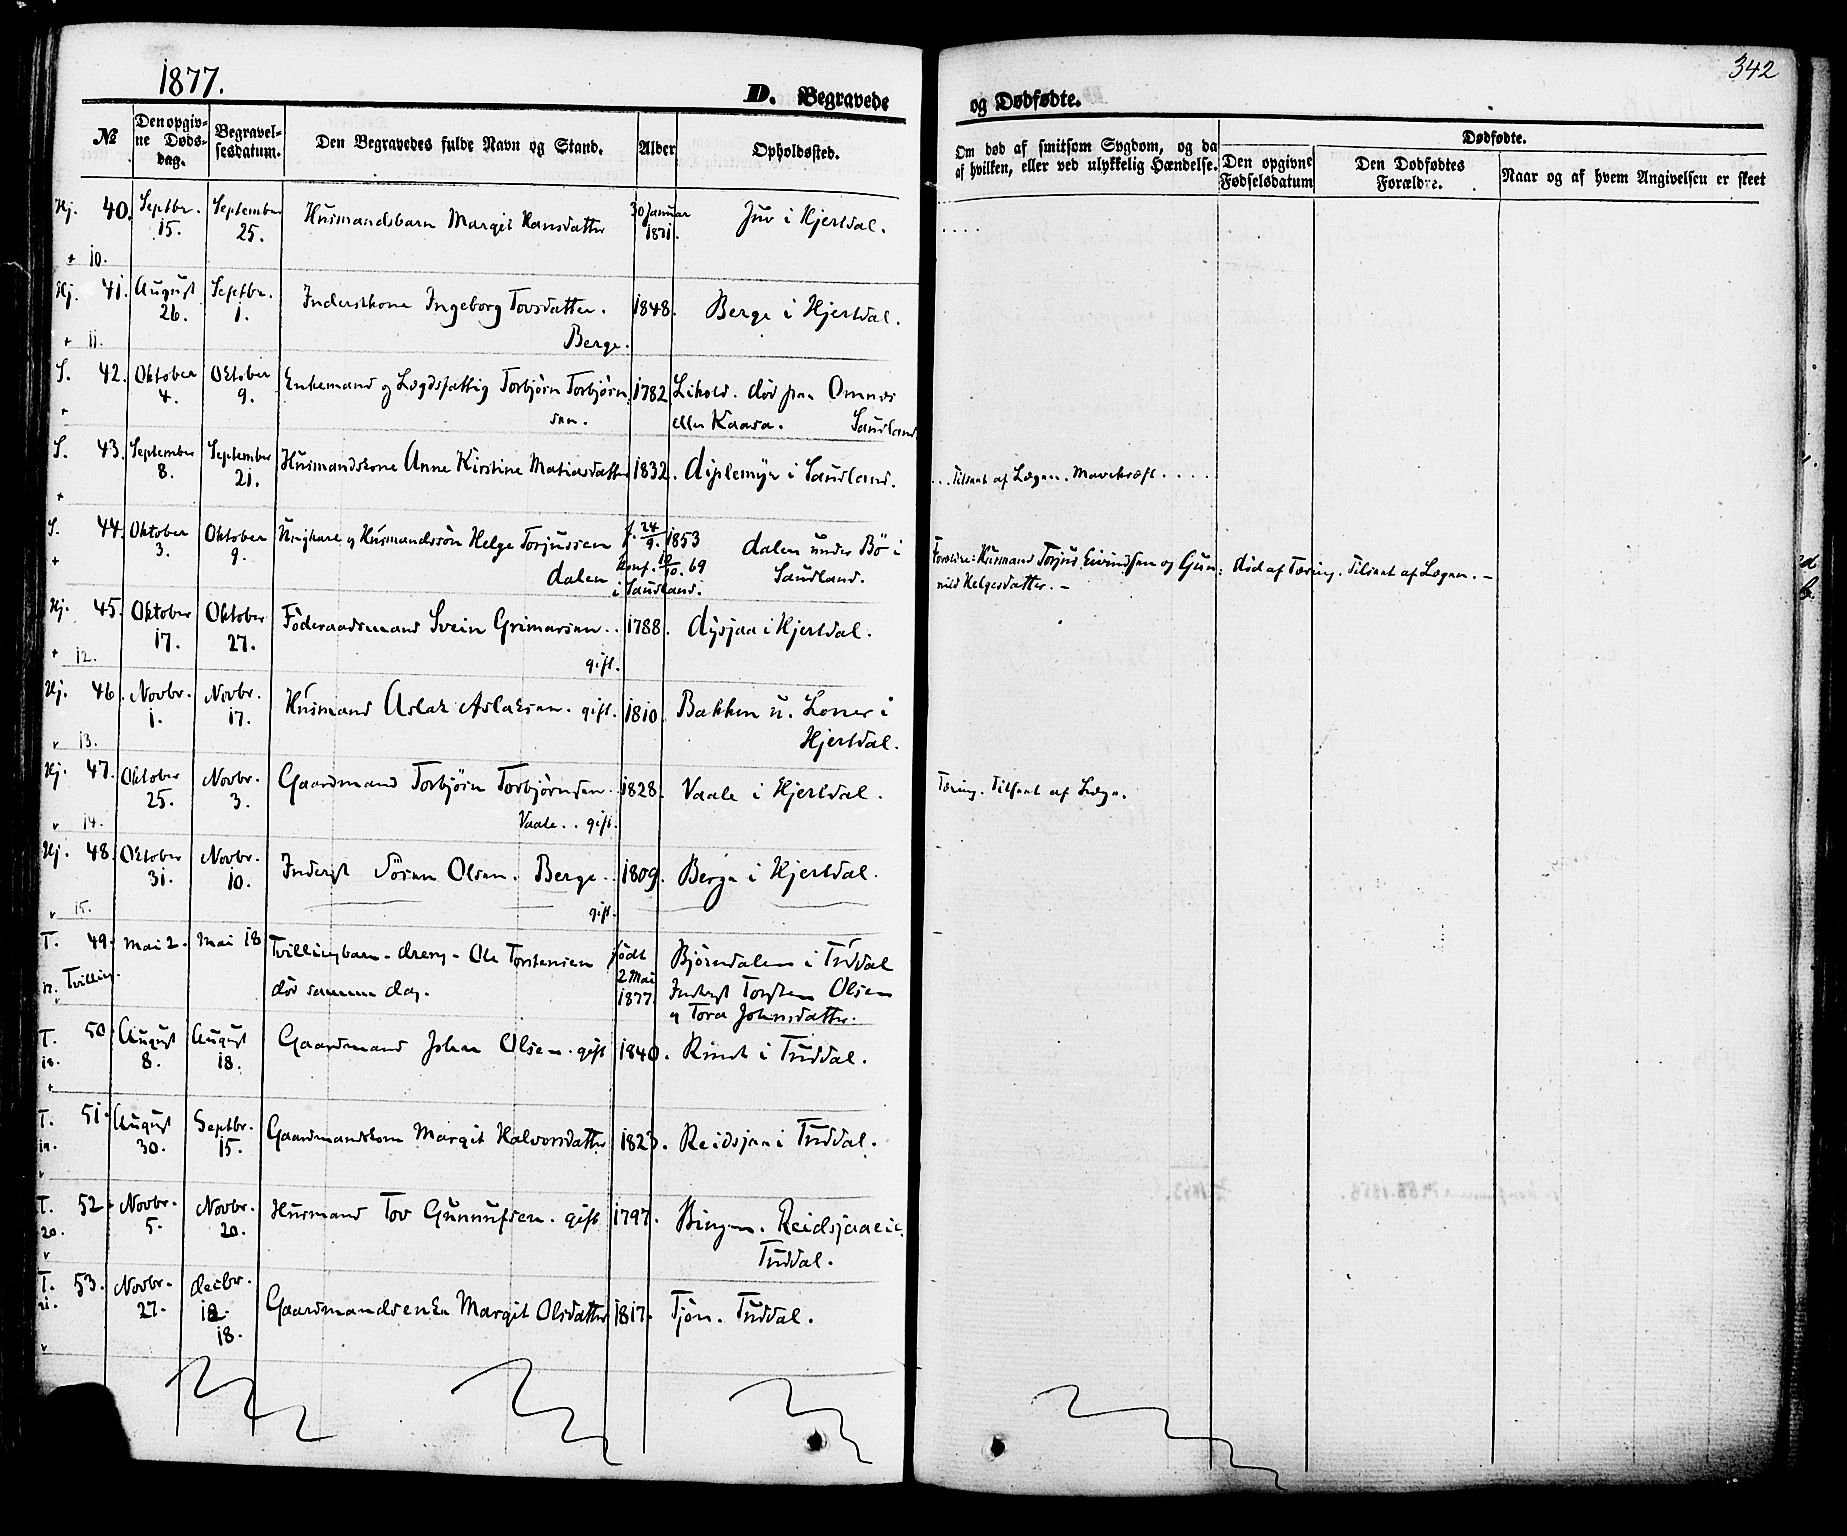 1877.
D. Begravede
№
Den opgiv-
ne Døds-
dag.
Begravel-
sesdatum.
Den Begravedes fulde Navn og Stand.
Alder
Opholdssted.
Hj. 40. Septbr. 15. September 25. Husmandsbarn Margit Hansdatter 30 Januar 1871. Juv i Hjertdal.
+ 10.
Hj. 41. August 26. Septbr. 1. Inderstkone Ingeborg Tovsdatter. 1848. Berge i Hjertdal.
+ 11. Berge.
S. 42. Oktober 4. Oktober 9. Enkemand og Lægdsfattig Torbjörn Torbjörn 1782 död paa Omnæs
+ sen. eller Kaasa. Saudland
S. 43. September 8. September 21. Husmandskone Anne Kirstine Matiasdatter 1832. i Saudland.
+
S. 44. Oktober 3. Oktober 9. Ungkarl og Husmandssön Helge Torjussen f. 24/9. 1853 dalen under Bö i
+ dalen i Saudland. Konf. 10/10. 69 Saudland.
Hj. 45. Oktober 17. Oktober 27. Föderaadsmand Svein Grimarsen. 1788. dysjaa i Hjertdal.
+ 12. gift.
Hj. 46. Novbr. 1. Novbr. 17. Husmand Aslak Aslaksen. gift. 1810. Bakken u. Loner i
v 13. Hjertdal.
Hj. 47. Oktober 25. Novbr. 3. Gaardmand Torbjörn Torbjörnsen. 1828. Vaale i Hjertdal.
v 14. Vaale.. gift.
Hj. 48. Oktober 31. Novbr. 10. Inderst Sören Olsen. Berge. 1809. Berge i Hjertdal.
v 15. gift.
T. 49. Mai 2. Mai 18 Tvillingbarn - dreng - Ole Torstensen födt 2 Mai 1877. Björndalen i Tuddal
17. Tvilling. död samme dag. Inderst Torsten Olsen
v og Tora Johnsdatter.
T. 50. August 8. August 18. Gaardmand John Olsen. gift 1840. Rindt i Tuddal.
18.
+
T. 51. August 30. Septbr. 15. Gaardmandskone Margit Halvorsdatter 1823. Reidsjaa i Tuddal.
19.
v
T. 52. Novbr. 5. Novbr. 20. Husmand Tov Gunnufsen. gift 1797. Bingen. Reidsjaaeie.
20. Tuddal.
v
T. 53. Novbr. 27. decbr. 18. Gaardmandsenke Margit Olsdatter 1817. Tjön. Tuddal.
21.
v
342
og Dødfødte.
Om død af smitsom Sygdom, og da
af hvilken, eller ved ulykkelig Hændelse.
Dødfødte.
Den opgivne
Fødselsdatum
Den Dødfødtes
Forældre.
Naar og af hvem Angivelsen er skeet
. . . .
... Tilseet af Lægen. Mavekræft . . . . .
Foreldre: Husmand Torjus Eivindsen og Gun: död af Tæring. Tilseet af Lægen. -
nild Helgesdatter. -
Tæring. Tilseet af Læge.